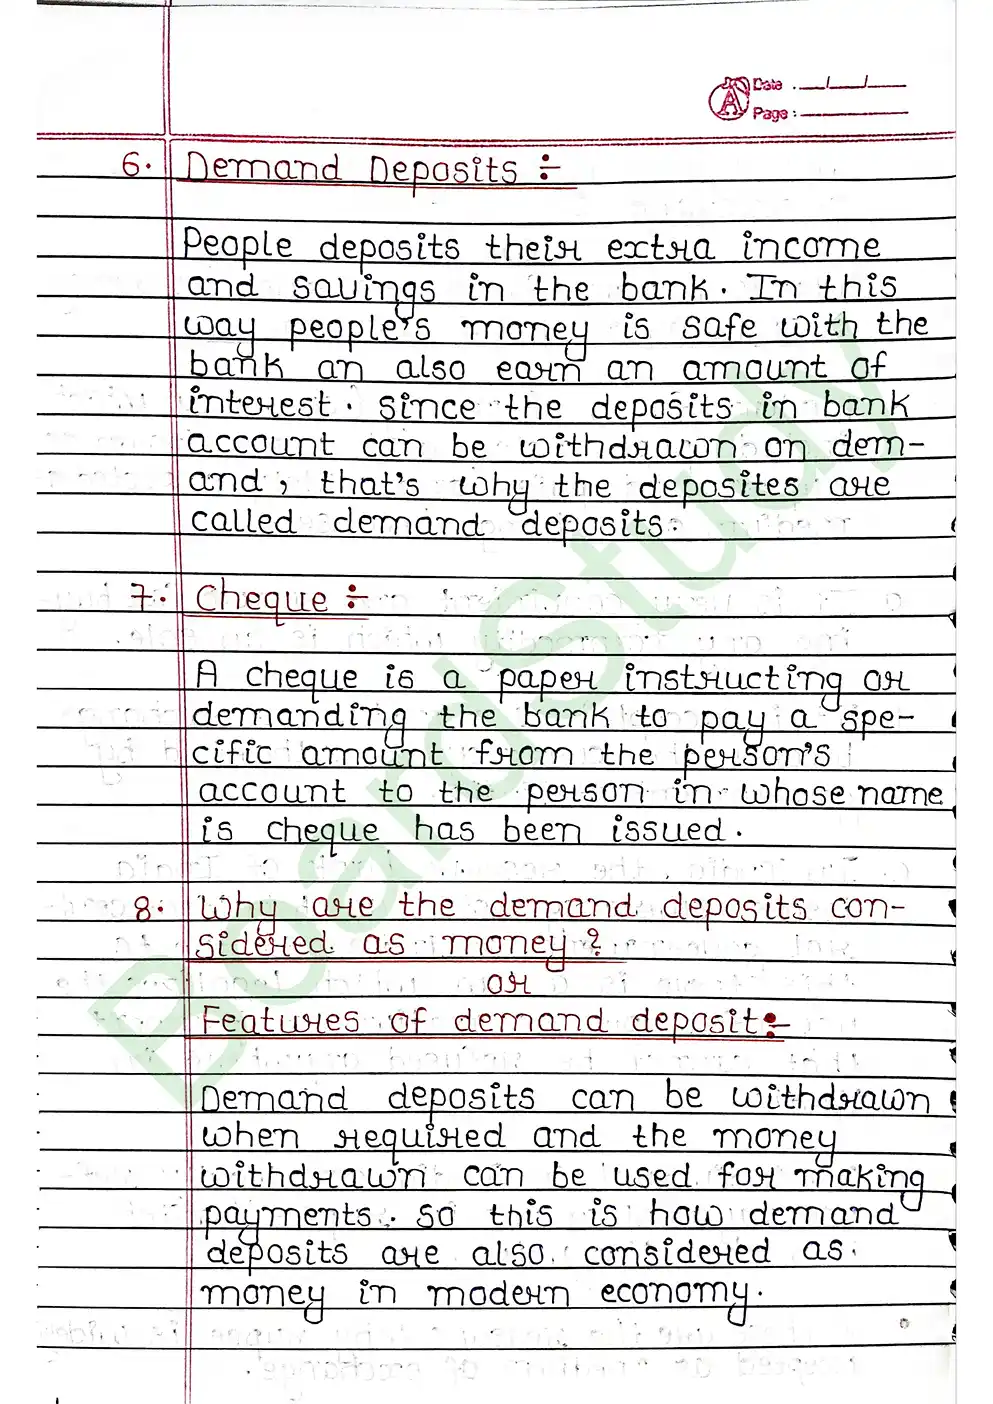 Date : __/__/__
Page : ______
6. Demand Deposits ÷
People deposits their extra income
and savings in the bank. In this
way people's money is safe with the
bank an also earn an amount of
interest. Since the deposits in bank
account can be withdrawn on dem-
and, that's why the deposites are
called demand deposits.
7. Cheque ÷
A cheque is a paper instructing or
demanding the bank to pay a spe-
cific amount from the person's
account to the person in whose name
is cheque has been issued.
8. Why are the demand deposits con-
sidered as money?
or
Features of demand deposit:-
Demand deposits can be withdrawn
when required and the money
withdrawn can be used for making
payments. So this is how demand
deposits are also considered as
money in modern economy.
BoardStudy